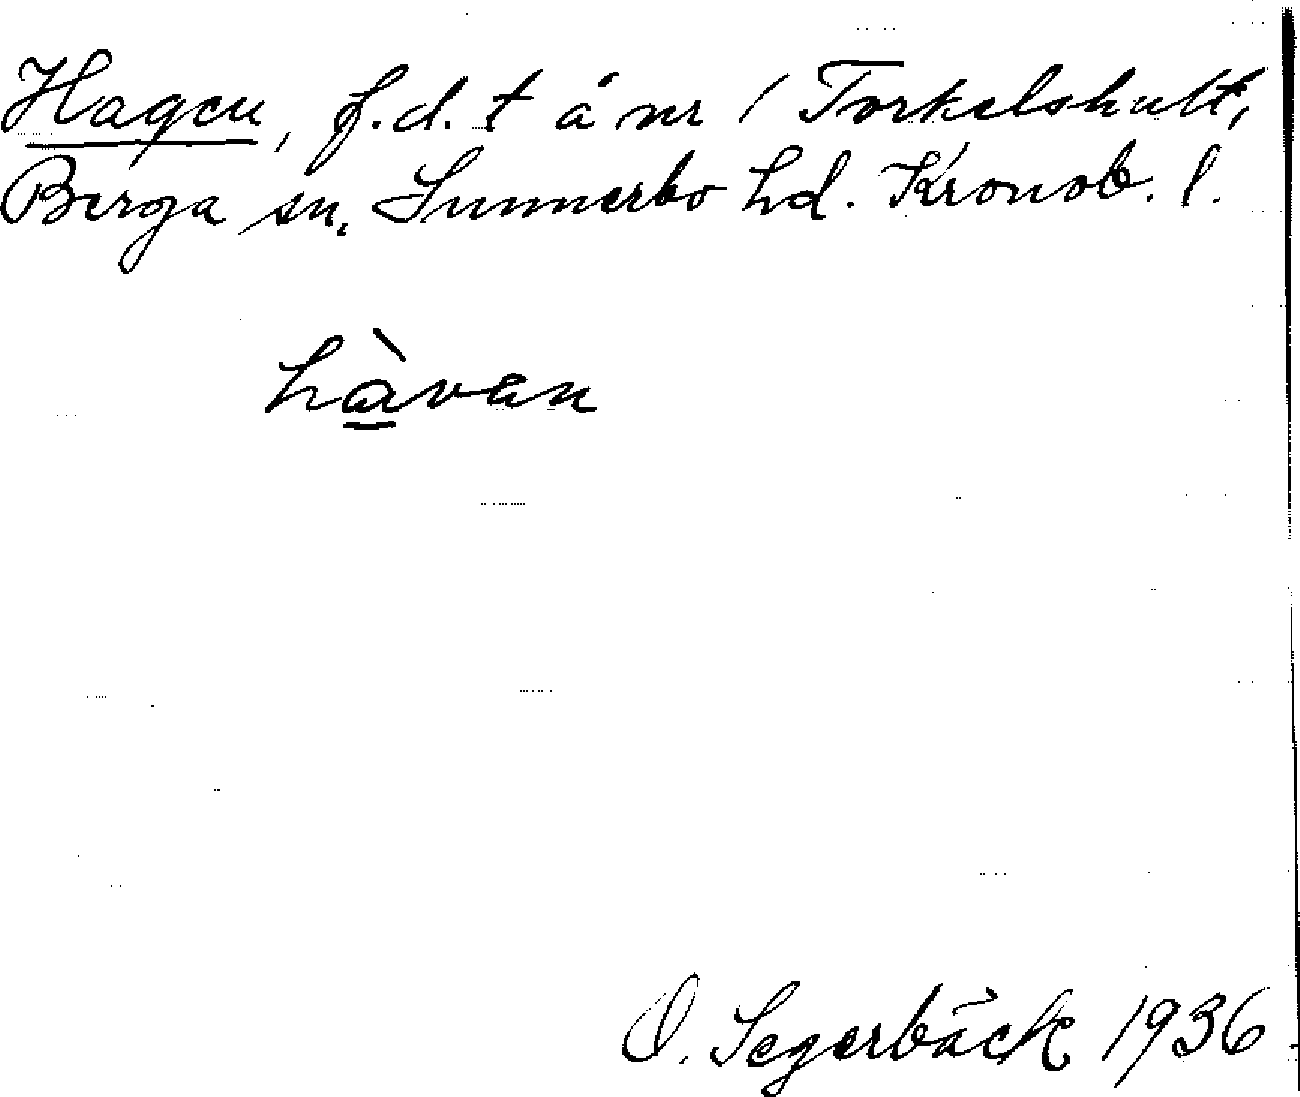 Hagen, f.d. t å nr 1 Torkelshult,
Berga sn, Sunnerbo hd. Kronob. l.
hàvan
O. Segerbäck 1936